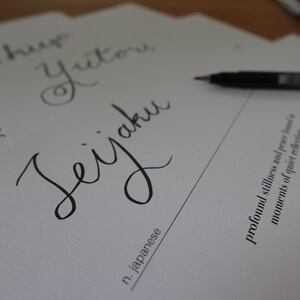 Yutori
Seijaku
n. japanese
profound stillness and peace found in
moments of quiet